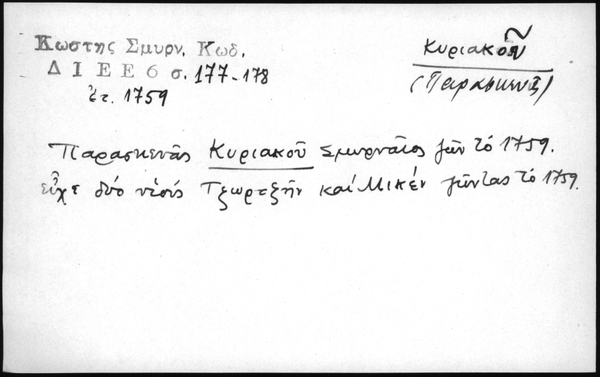 Κωστης Σμυρν. Κωδ.
Δ Ι Ε Ε 6 σ. 177-178
ἐτ. 1759
Κυριακοῦ
(Παρασκευᾶς)
Παρασκευᾶς Κυριακοῦ Σμυρναῖος ζῶν τό 1759.
εἶχε δύο υἱούς Τζωρτζῆν καί Μικέν ζῶντας τό 1759.